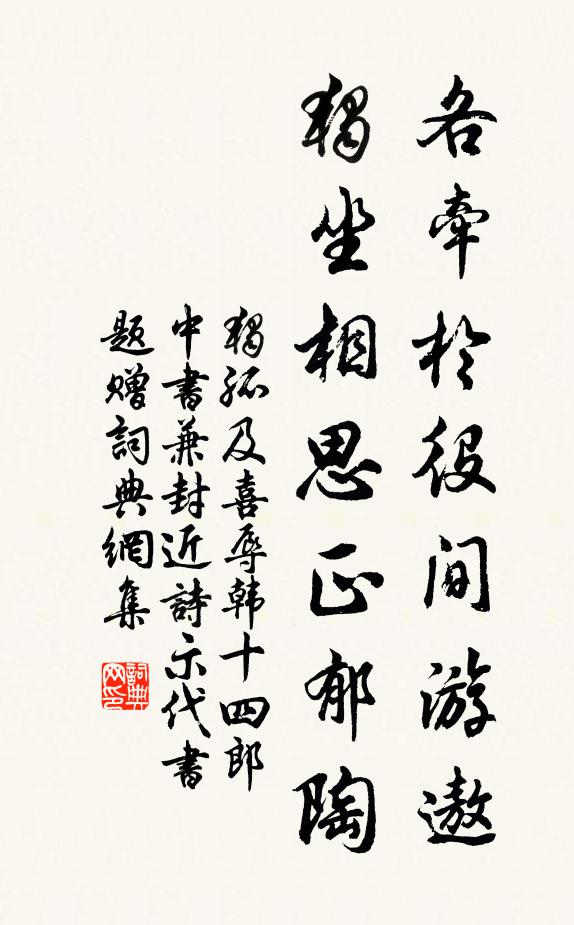 各牵於役间游遨
独坐相思正郁陶
独孤及喜辱韩十四郎
中書兼封近詩示代書
題赠詞典網集
詞典网印